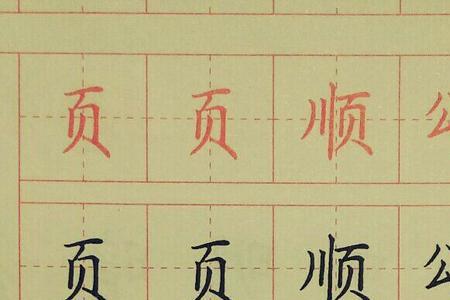 页页顺
页页顺